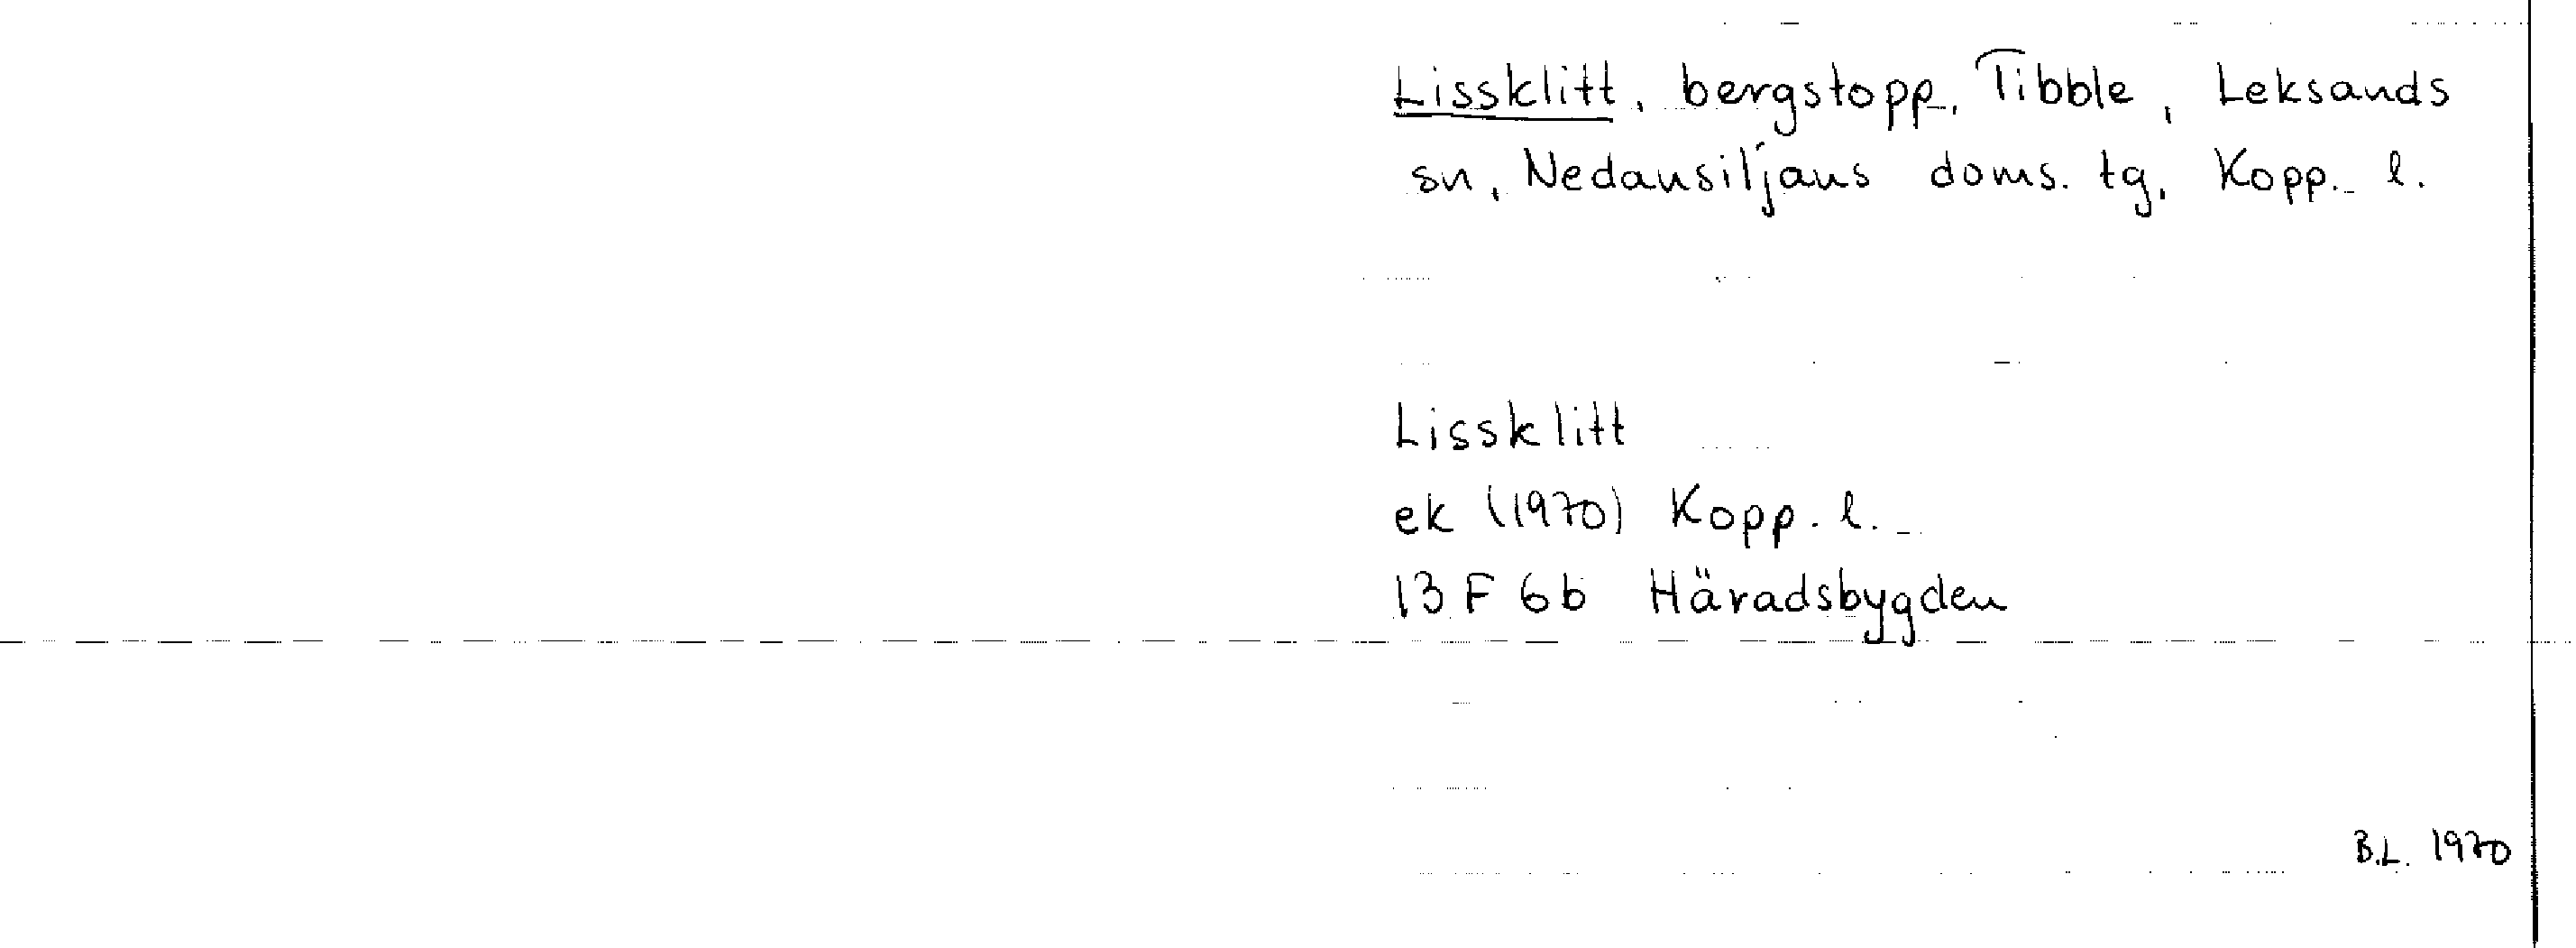 Lissklitt, bergstopp, Tibble, Leksands
sn, Nedansiljans doms. tg, Kopp. l.
Lissklitt
ek (1970) Kopp. l.
13 F 6b Häradsbygden
B.L. 1970